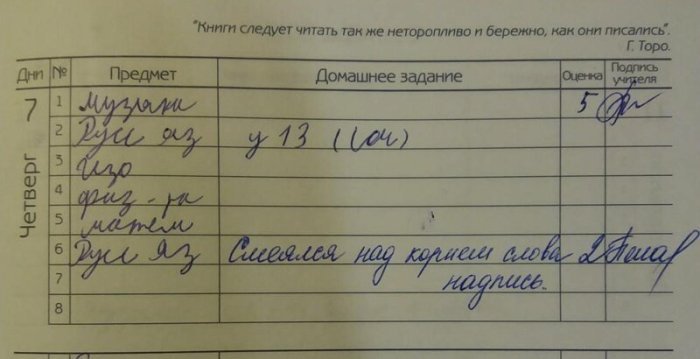 "Книги следует читать так же неторопливо и бережно, как они писались".
Г. Торо.
Дни № Предмет Домашнее задание Оценка Подпись учителя
7 Четверг
1 музыка 5
2 Русс яз у 13
3 Изо
4 физ-ра
5 матем
6 Русс яз Смеялся над корнем слова 2
7 надпись.
8